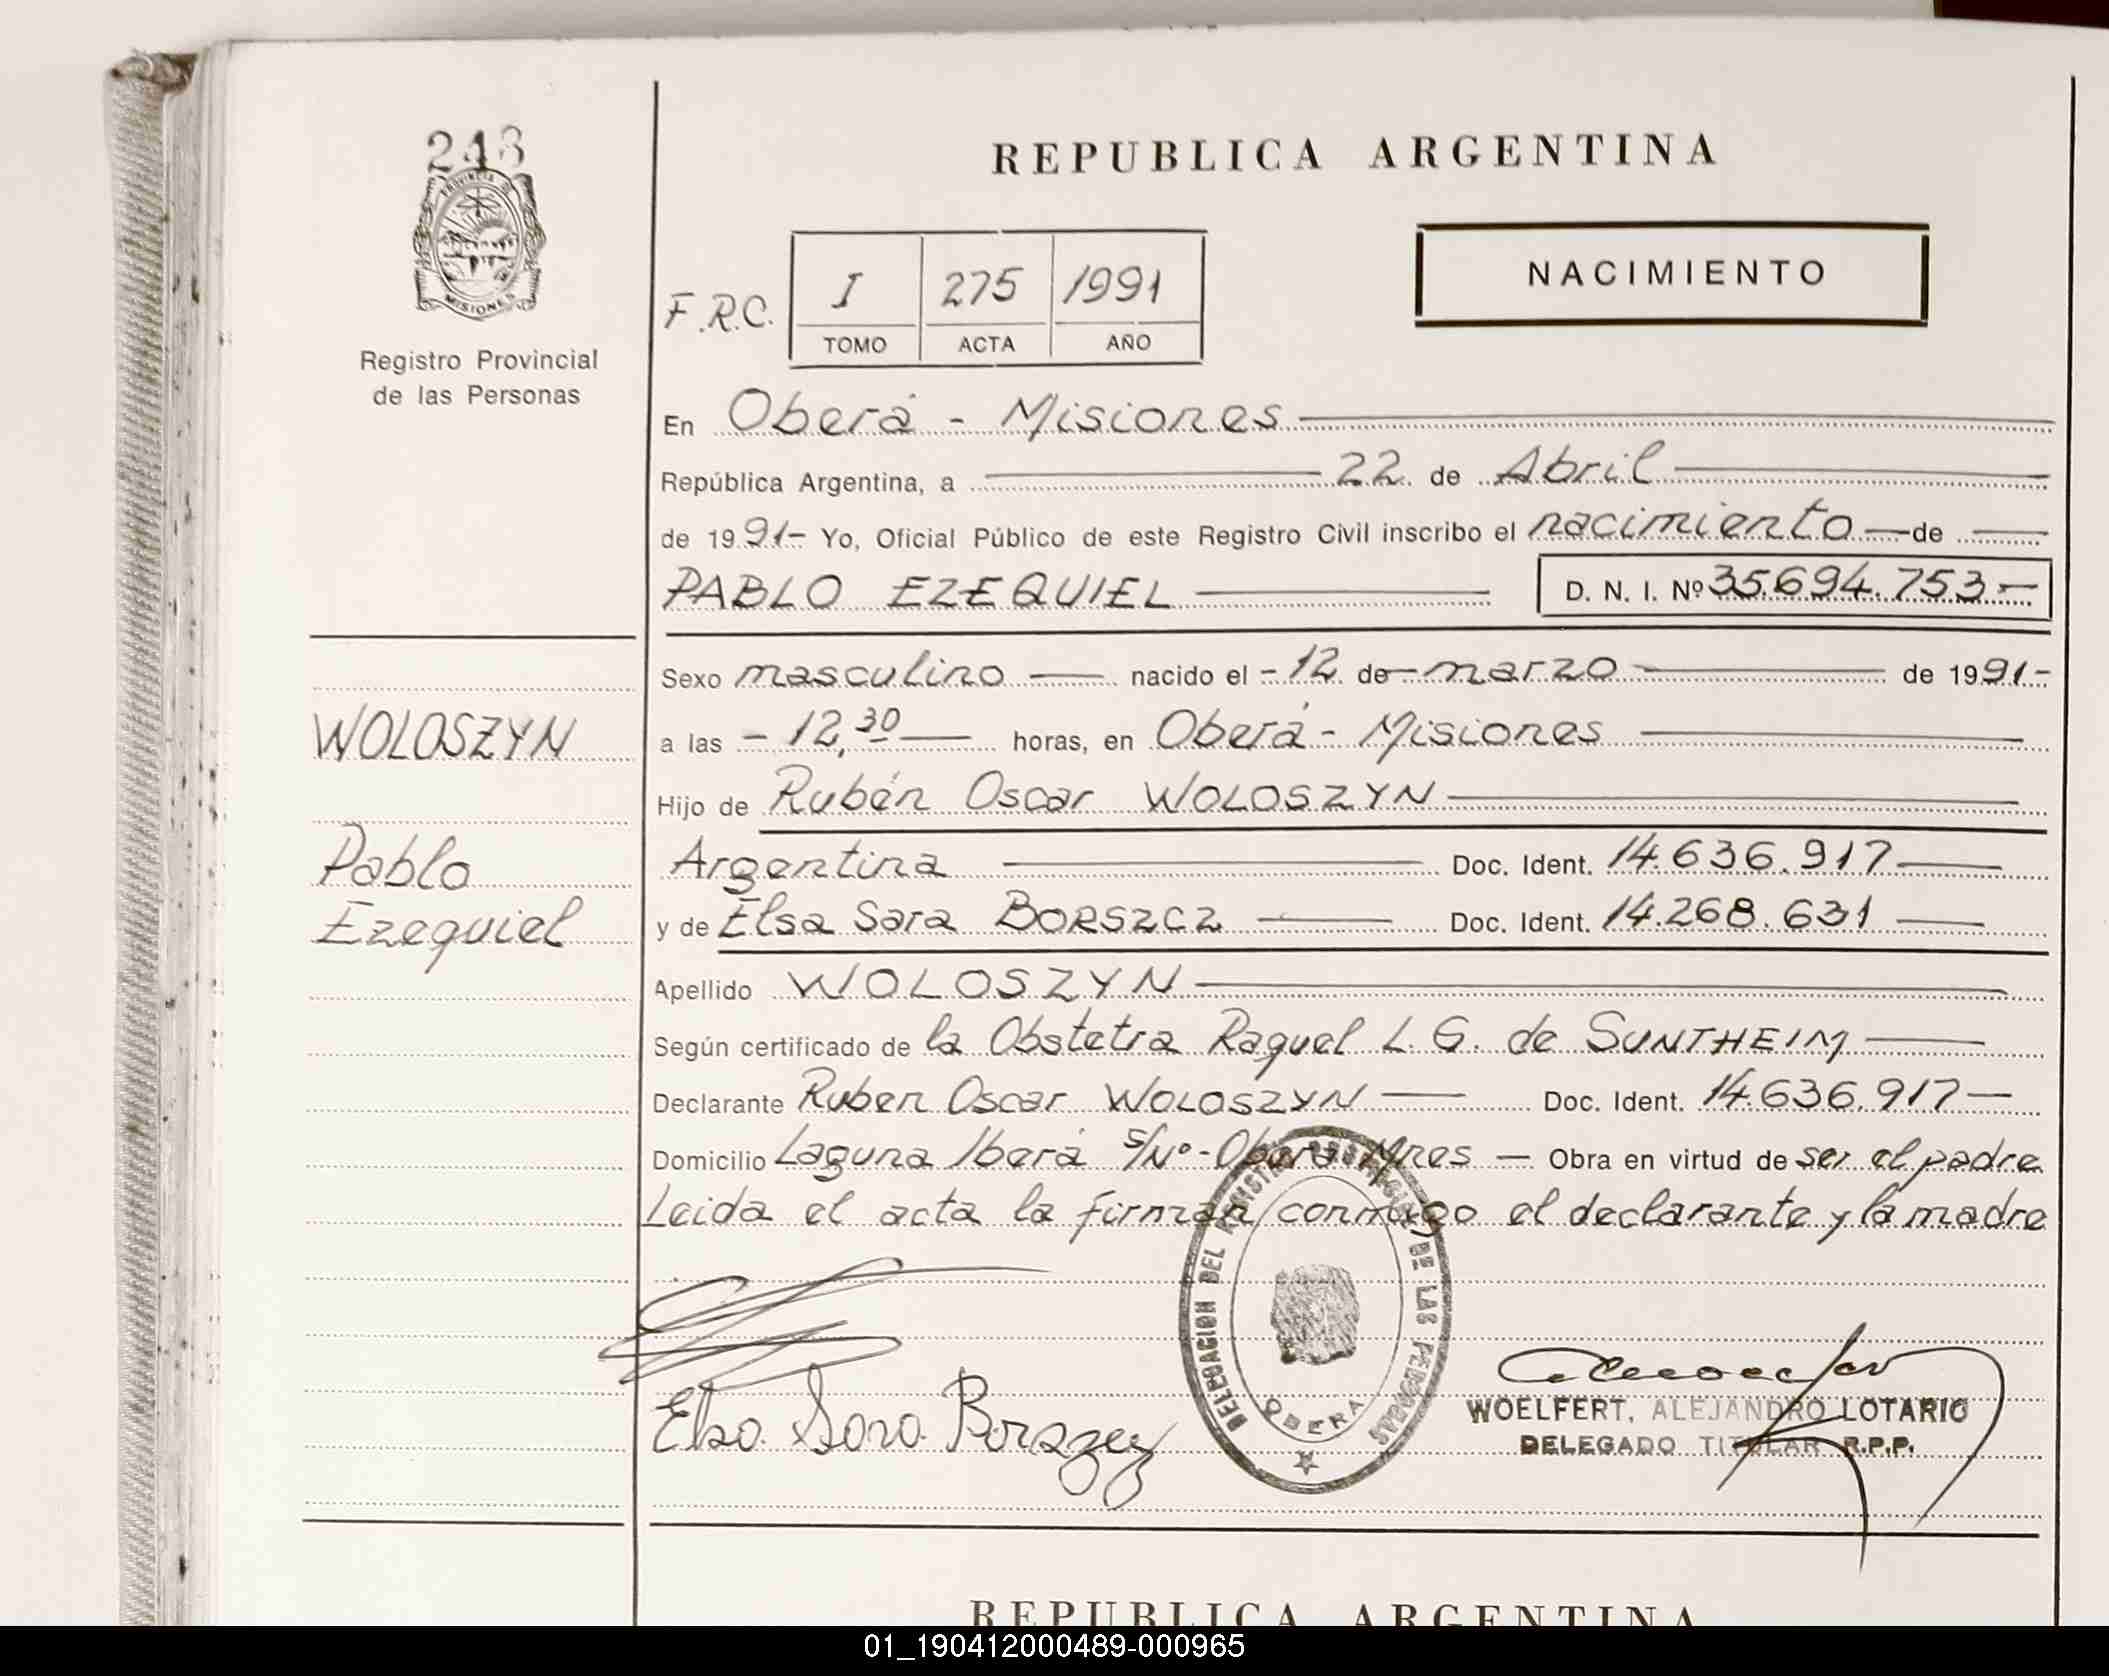 243
PROVINCIA DE
MISIONES
Registro Provincial
de las Personas
REPUBLICA ARGENTINA
NACIMIENTO
F.R.C.
I 275 1991
TOMO ACTA AÑO
En Oberá - Misiones
República Argentina, a 22 de Abril
de 1991- Yo, Oficial Público de este Registro Civil inscribo el nacimiento de
PABLO EZEQUIEL D. N. I. Nº 35.694.753-
Sexo masculino nacido el - 12 de marzo de 1991-
WOLOSZYN
a las - 12,30 horas, en Oberá - Misiones
Hijo de Rubén Oscar WOLOSZYN
Pablo
Argentina Doc. Ident. 14.636.917
Ezequiel
y de Elsa Sara BORSZCZ Doc. Ident. 14.268.631
Apellido WOLOSZYN
Según certificado de la Obstetra Raquel L. G. de SUNTHEIM
Declarante Ruben Oscar WOLOSZYN Doc. Ident. 14.636.917
Domicilio Laguna Iberá s/Nº - Oberá Mnes - Obra en virtud de ser el padre
Leida el acta la firman conmigo el declarante y la madre
DELEGACION DEL REGISTRO DE LAS PERSONAS
OBERA
Elsa Sara Borszcz
WOELFERT, ALEJANDRO LOTARIO
DELEGADO TITULAR R.P.P.
REPUBLICA ARGENTINA
01_190412000489-000965